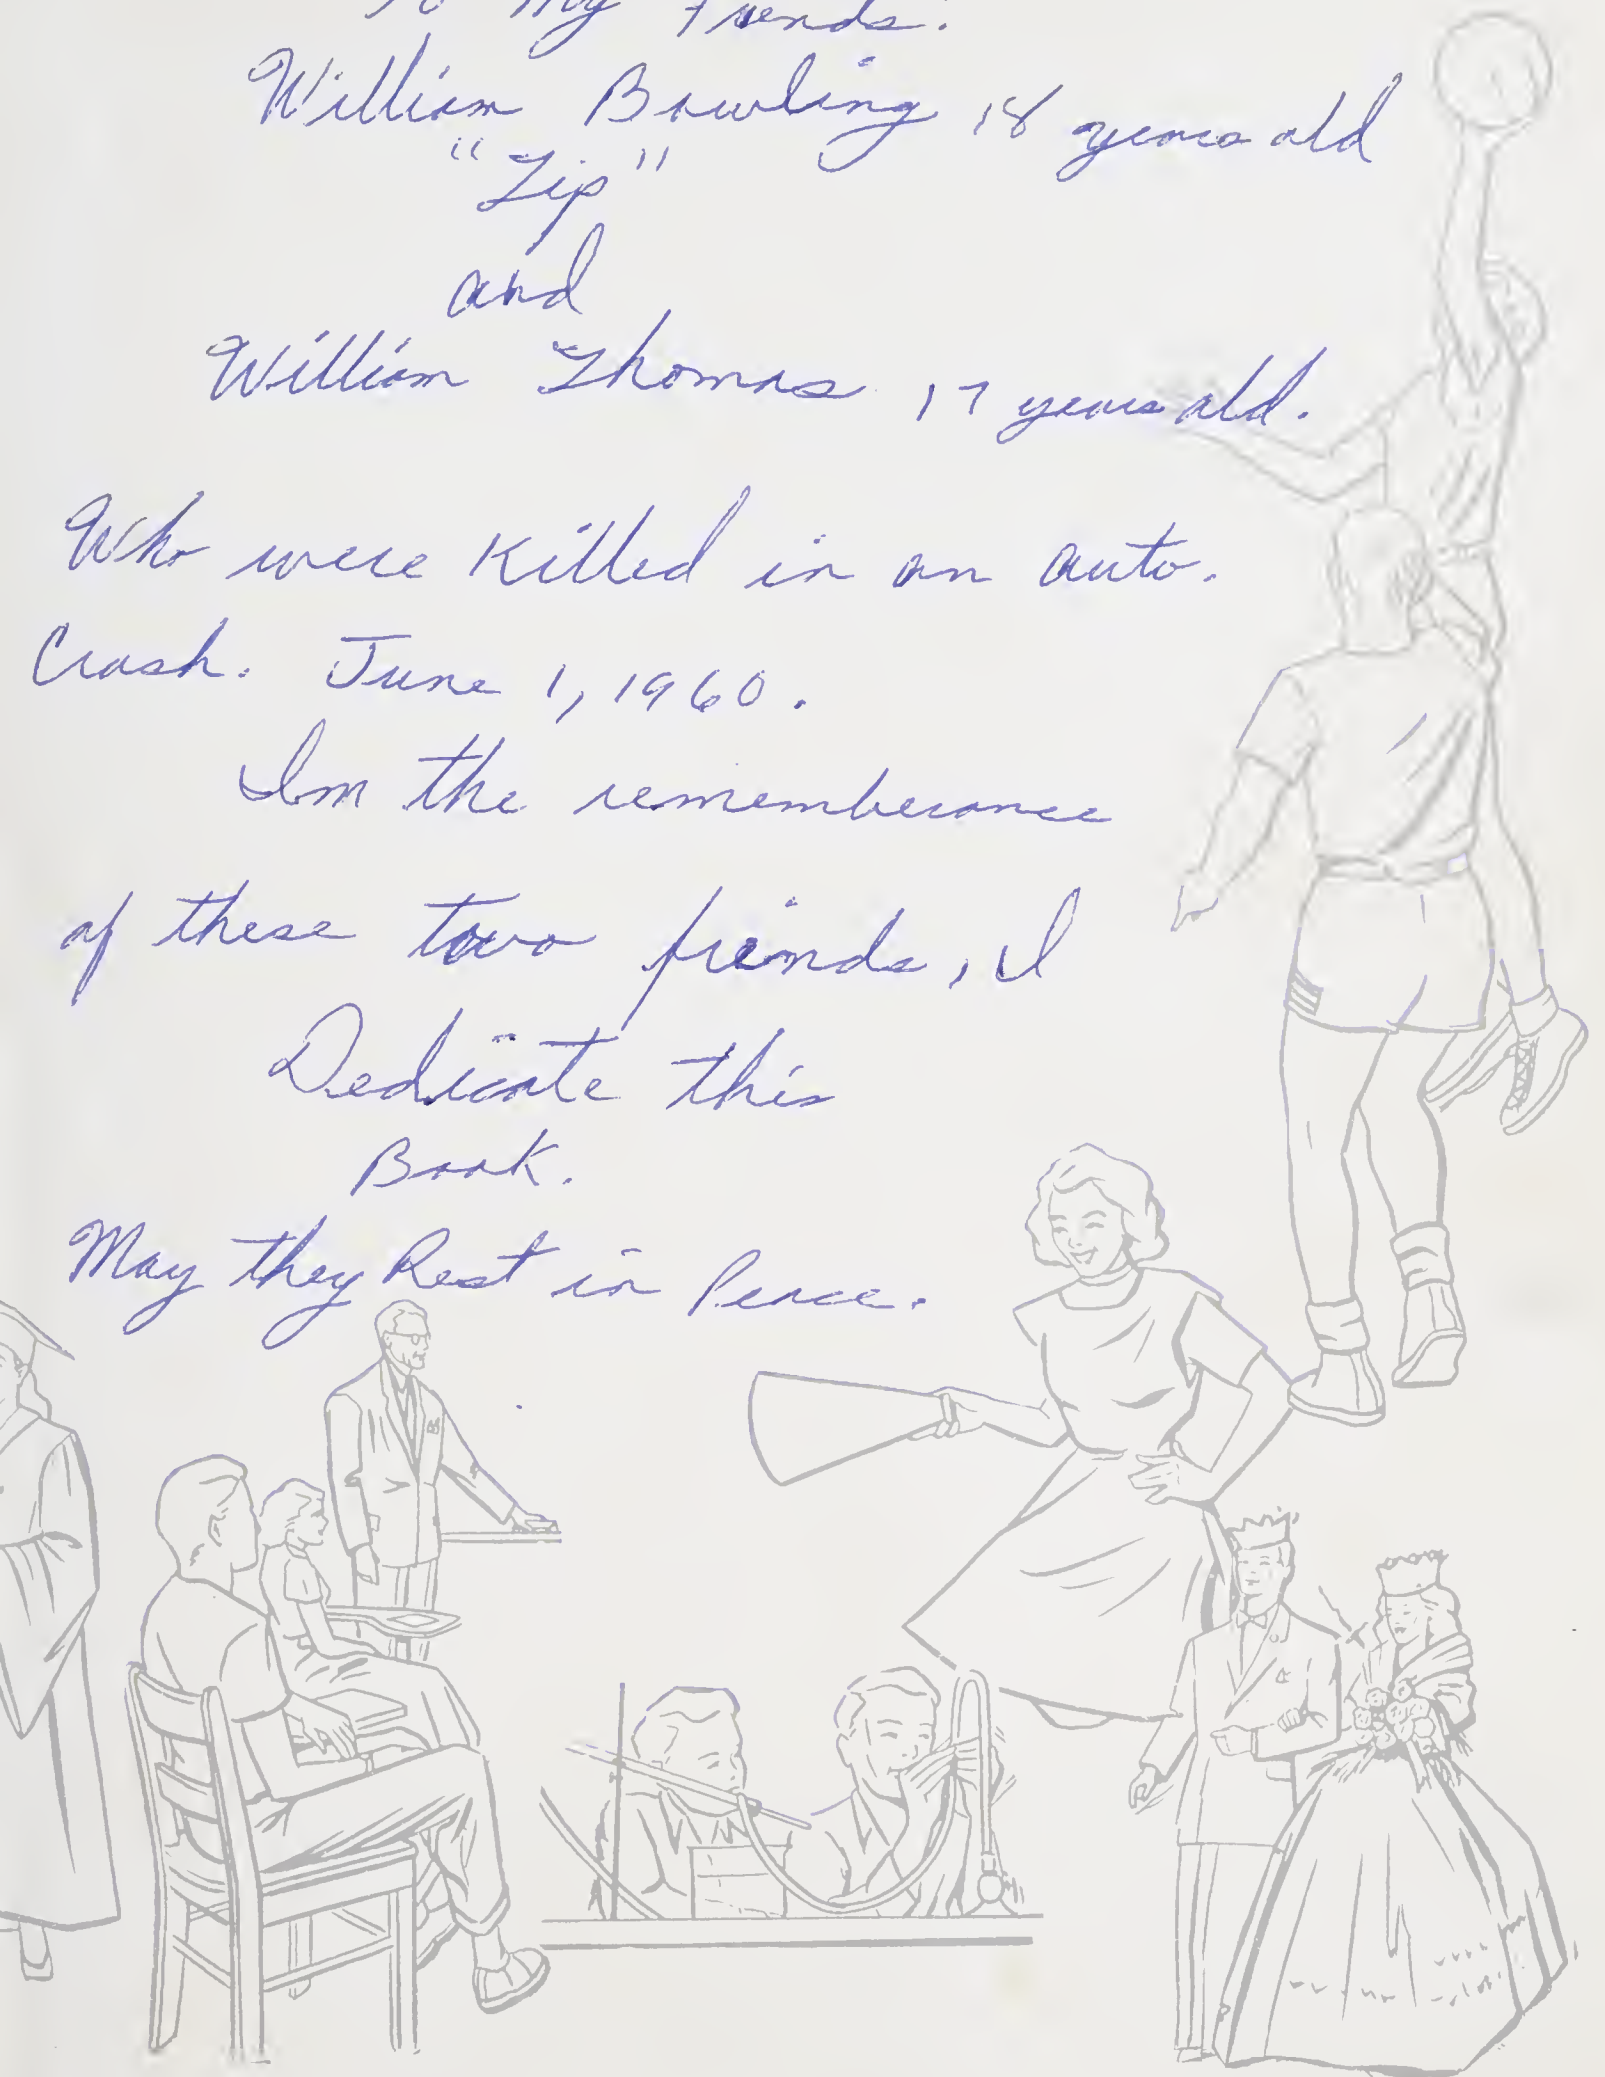 To My Friends.
William Bowling 18 years old
"Zip"
and
William Thomas 17 years old.
Who were Killed in an auto.
Crash. June 1, 1960.
Im the rememberance
of these two friends, I
Dedicate this
Book.
May they Rest in Peace.